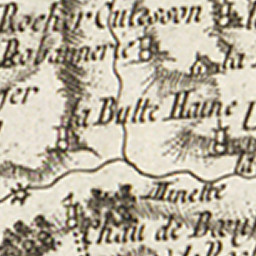 Rocher Cutesson
Robannerie
la
ger
la Butte Haine
L
la
Minette
Chau de Bœuf